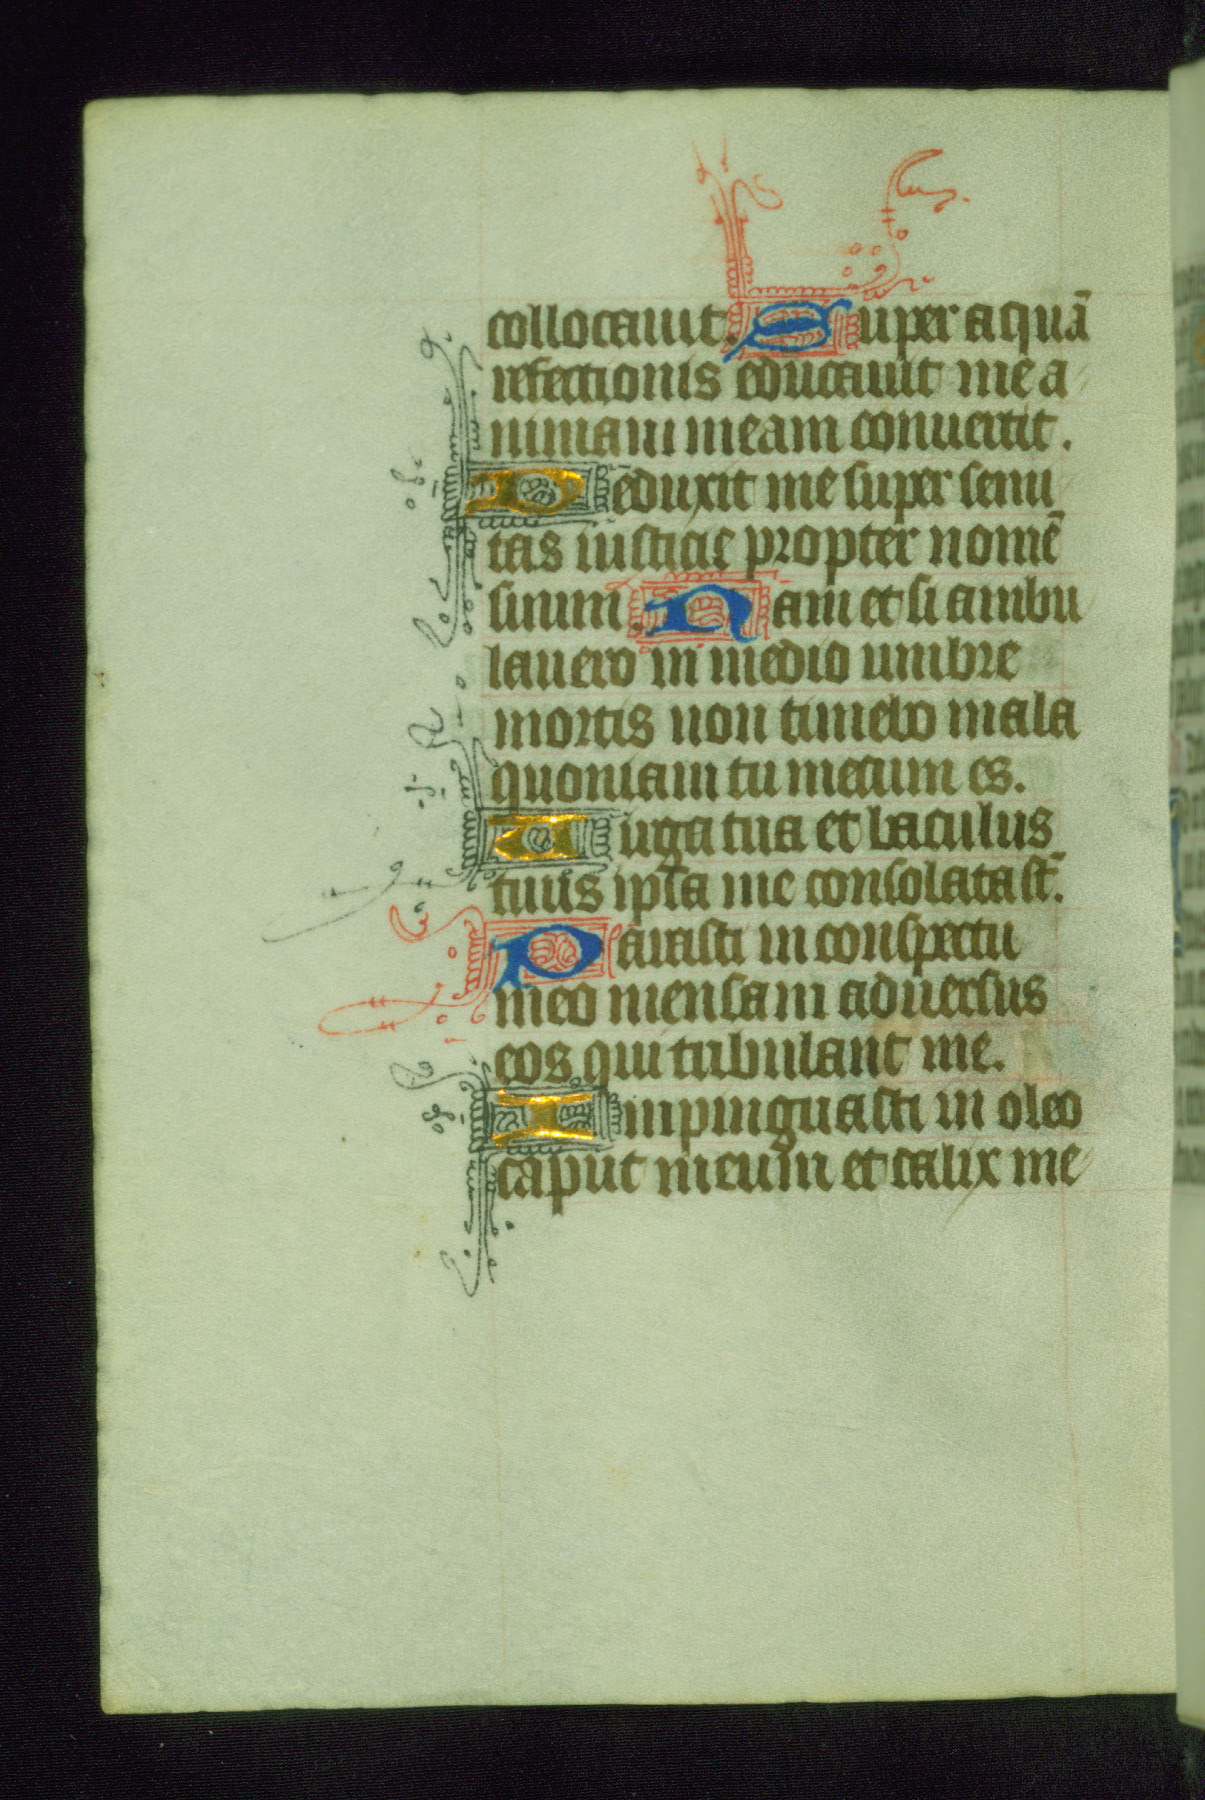 collocauit. Super aquā
refectionis educauit me a
nimam meam conuertit.
Deduxit me super semi
tas iusticie propter nomē
suum. Nam et si ambu
lauero in medio umbre
mortis non timebo mala
quoniam tu mecum es.
Uirga tua et baculus
tuus ipsa me consolata st̄.
Parasti in conspectu
meo mensam aduersus
eos qui tribulant me.
Inpinguasti in oleo
caput meum et calix me